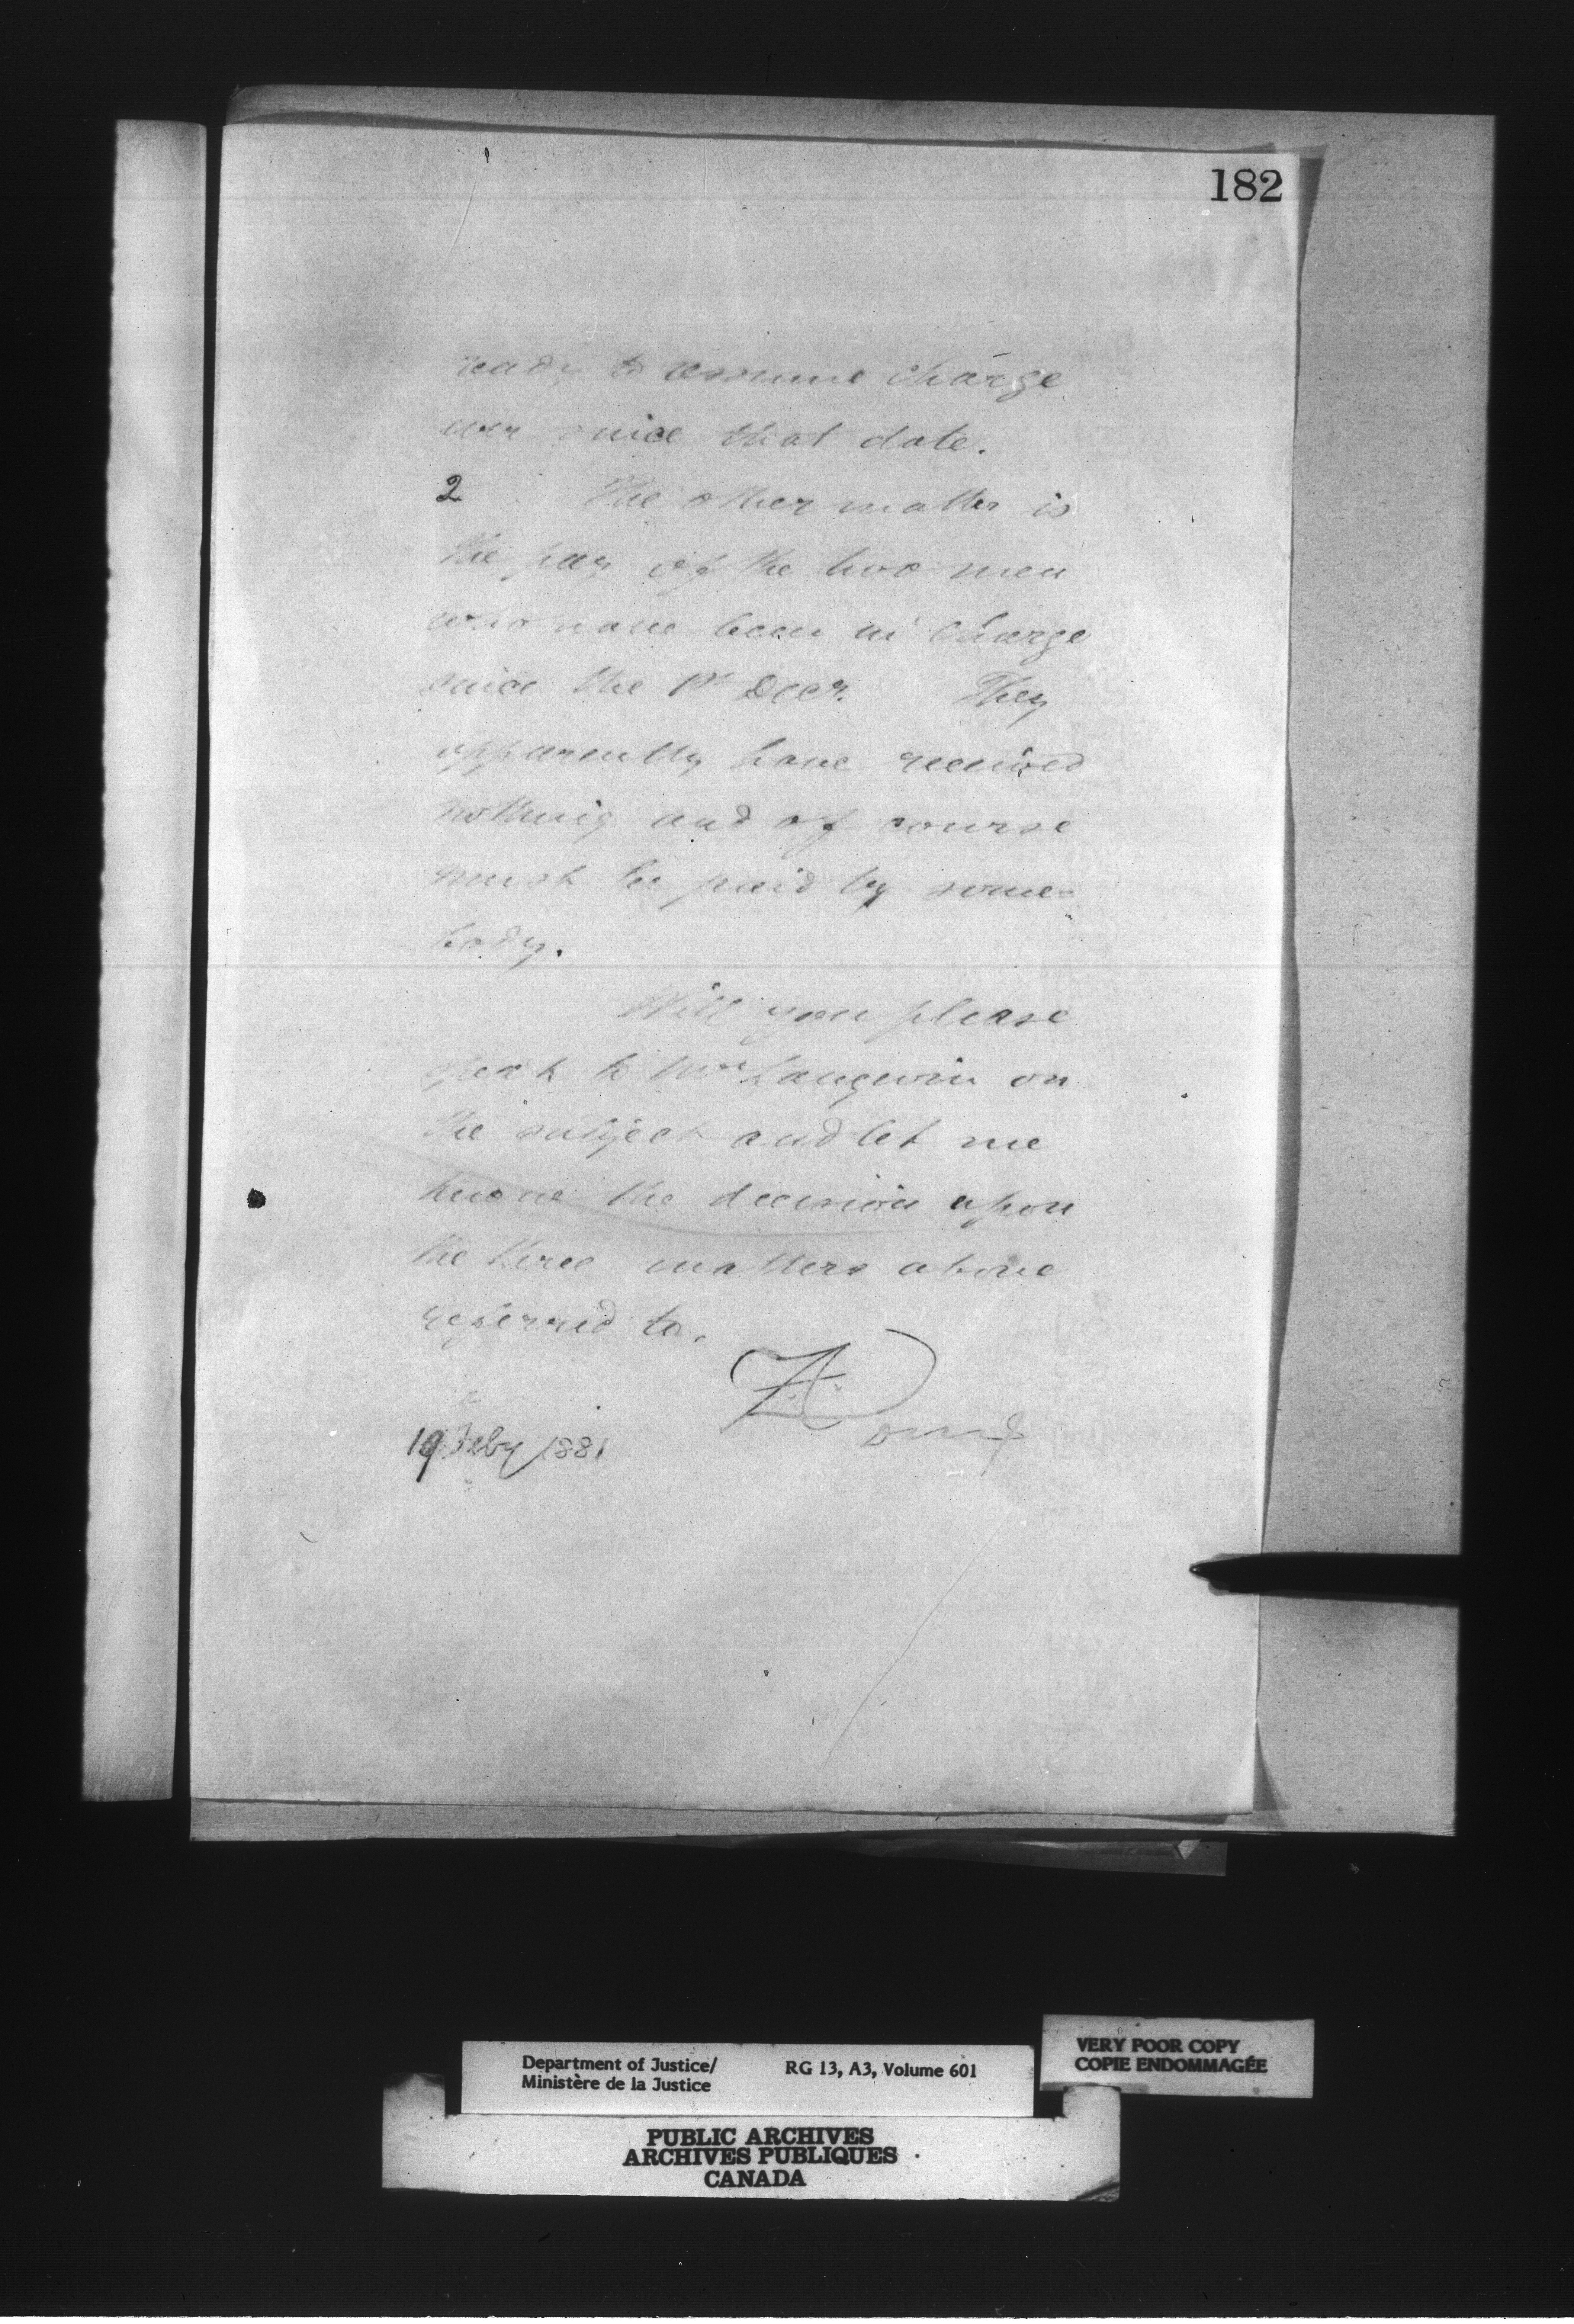 182
ready to assume charge
ever since that date.
2 The other matter is
the pay of the two men
who have been in charge
since the 1st Decr. They
apparently have received
nothing and of course
must be paid by some-
body.
Will you please
speak to Mr Langevin on
the subject and let me
know the decision upon
the three matters above
referred to.
19 Feby 1881
Department of Justice/
Ministère de la Justice
RG 13, A3, Volume 601
VERY POOR COPY
COPIE ENDOMMAGÉE
PUBLIC ARCHIVES
ARCHIVES PUBLIQUES
CANADA